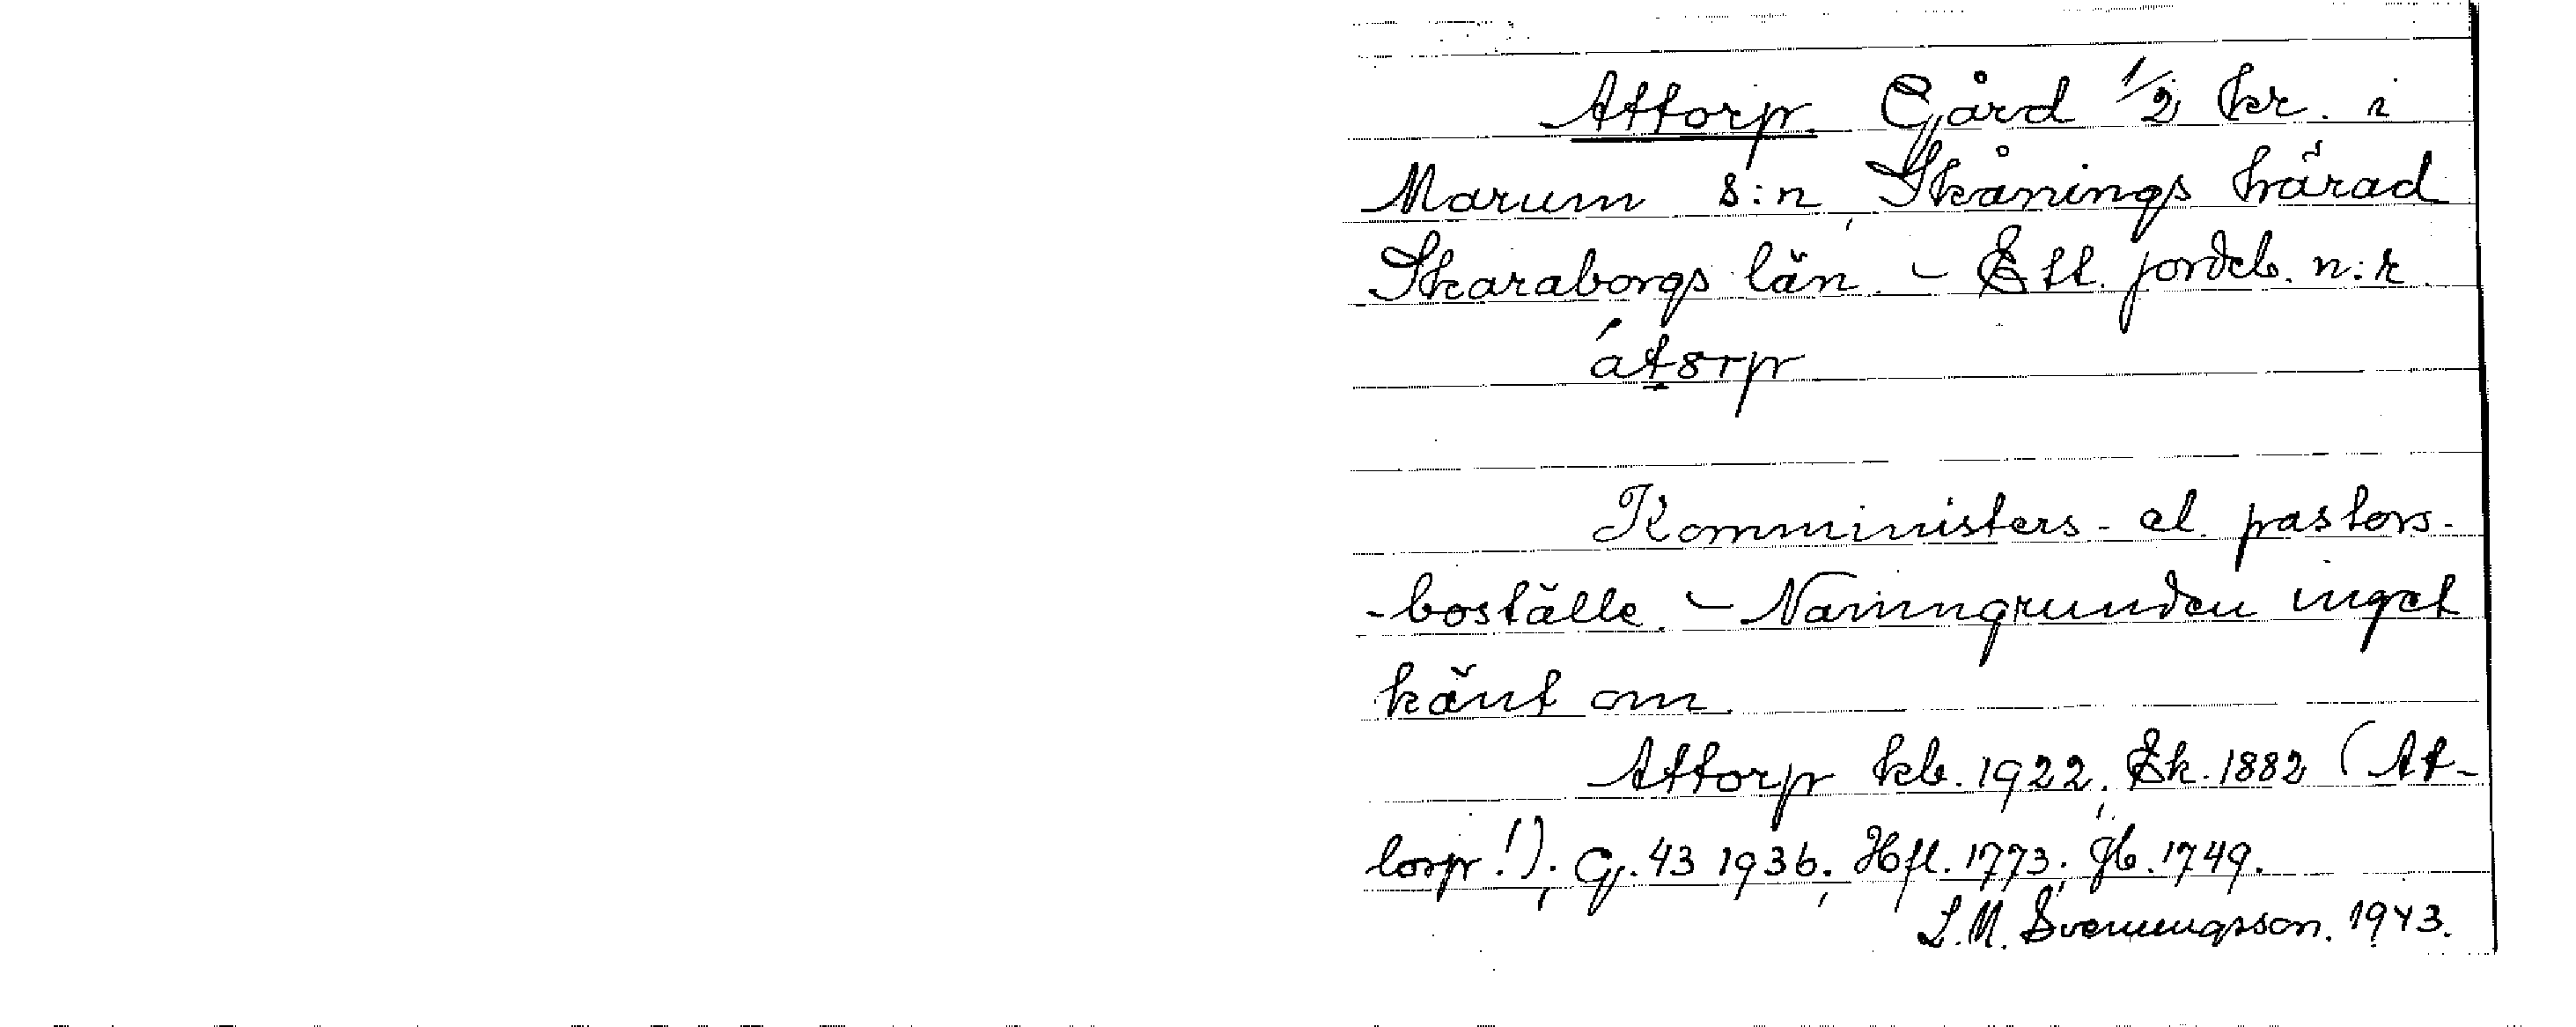 Attorp. Gård 1/2 kr. i
Marum s:n, Skånings härad
Skaraborgs län. – Ett jordeb. n:r.
átsrp
Komministers- el. pastors-
-boställe. – Namngrunden inget
känt om.
Attorp kb. 1922; Ek. 1882 (At-
lorp!); Gj. 43 1936; Hfl. 1773; Jb. 1749.
L.M. Svenungsson. 1943.